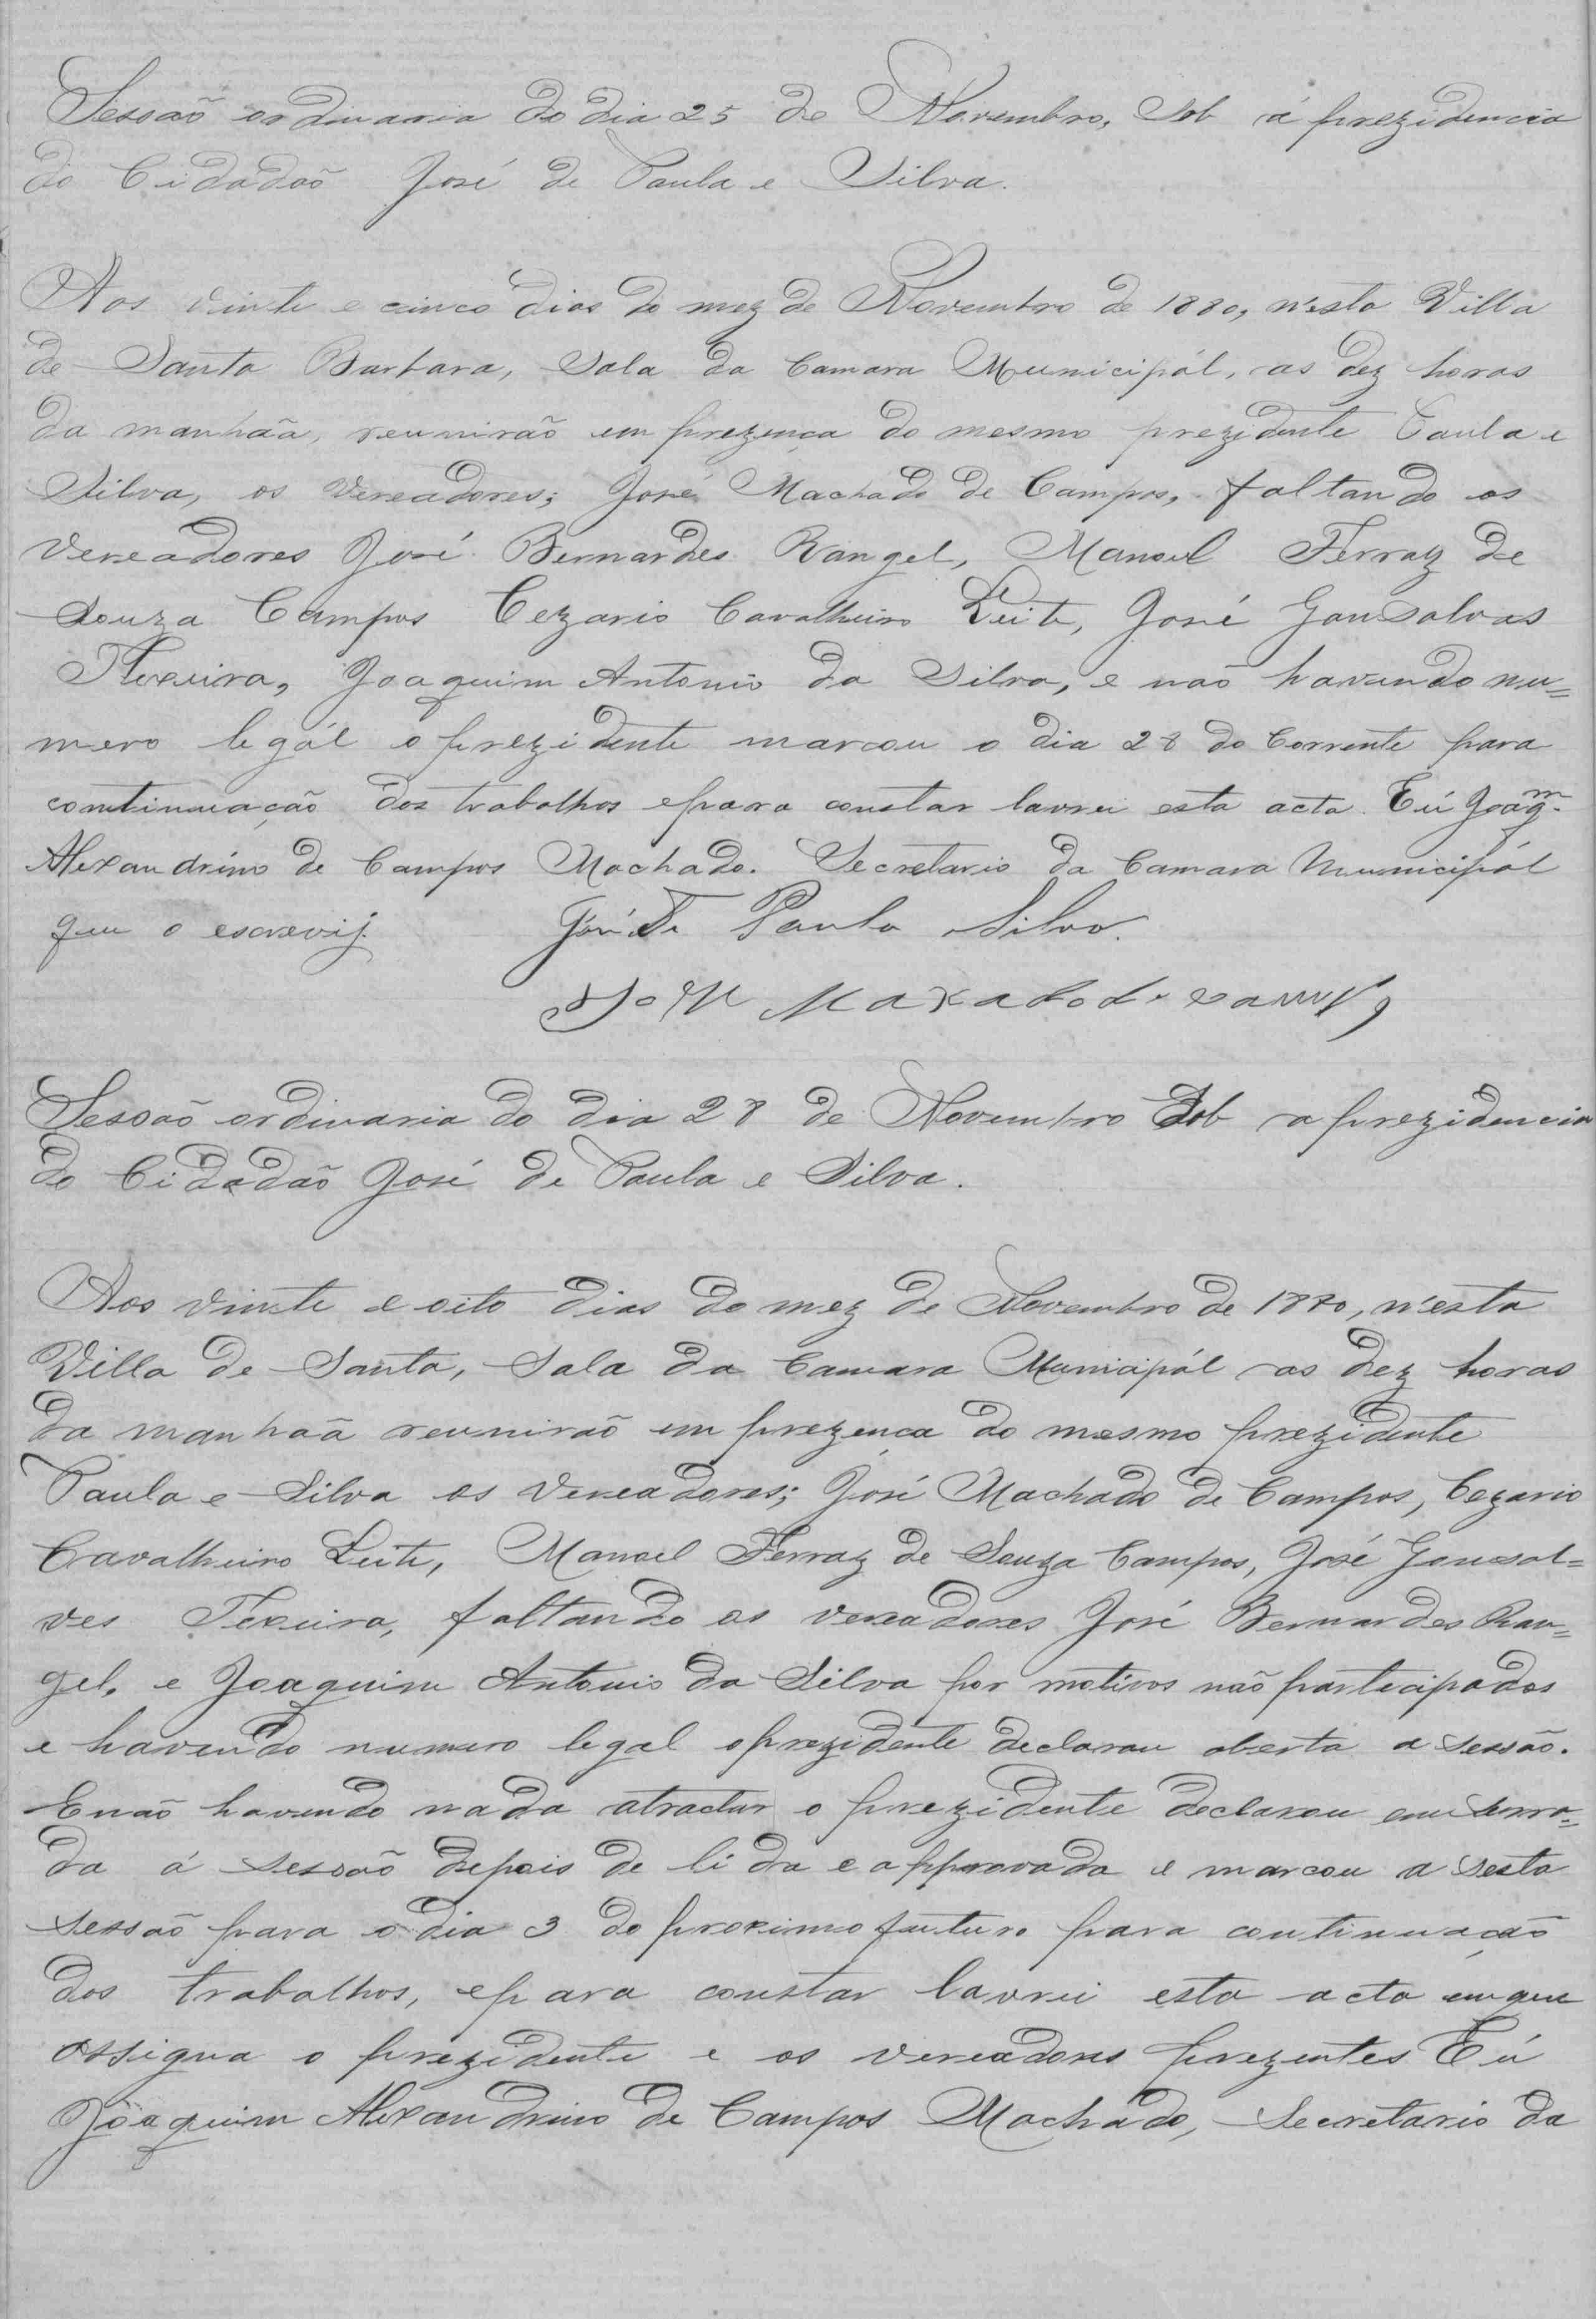 Sessaõ ordinaria do dia 25 de Novembro, Sob á prezidencia
do Cidadaõ José de Paula e Silva.
Aos vinte e cinco dias do mez de Novembro de 1880, n'esta Villa
de Santa Barbara, Sala da Camara Municipál, as dez horas
da manhãa, reunirão em prezença do mesmo prezidente Paula e
Silva, os Vereadores; José Machado de Campos, faltando os
Vereadores José Bernardes Rangel, Manoel Ferraz de
Souza Campos Cezario Cavalheiro Leite, José Gonsalvas
Texeira, Joaquim Antonio da Silva, e naõ havendo nu=
mero legál o prezidente marcou o dia 28 do Corrente para
continuação dos trabalhos epara constar lavrei esta acta. Eú Joaqm.
Alexandrino de Campos Machado. Secretario da Camara Municipál
que o escrevij.
José de Paula Silva.
José Maxado de Campos
Sessaõ ordinaria do dia 28 de Novembro Sob a prezidencia
do Cidadão José de Paula e Silva.
Aos vinte e oito dias do mez de Novembro de 1880, n'esta
Villa de Santa, Sala da Camara Municipál as dez horas
da manhãa reuniraõ em prezença do mesmo prezidente
Paula e Silva os Vereadores; José Machado de Campos, Cezario
Cavalheiro Leite, Manoel Ferraz de Souza Campos, José Gonsal=
ves Texeira, faltando os vereadores José Bernardes Ran=
gel, e Joaquim Antonio da Silva por motivos não participados
e havendo numero legal oprezidente declarou aberta a sessão.
Enaõ havendo nada atractar o prezidente declarou enserra=
da á sessaõ depois de lida e approvada e marcou a sesta
sessaõ para o dia 3 do proximo futuro para continuação
dos trabalhos, epara constar lavrei esta acta emque
assigna o prezidente e os vereadores prezentes Eú
Joaquim Alexandrino de Campos Machado, Secretario da